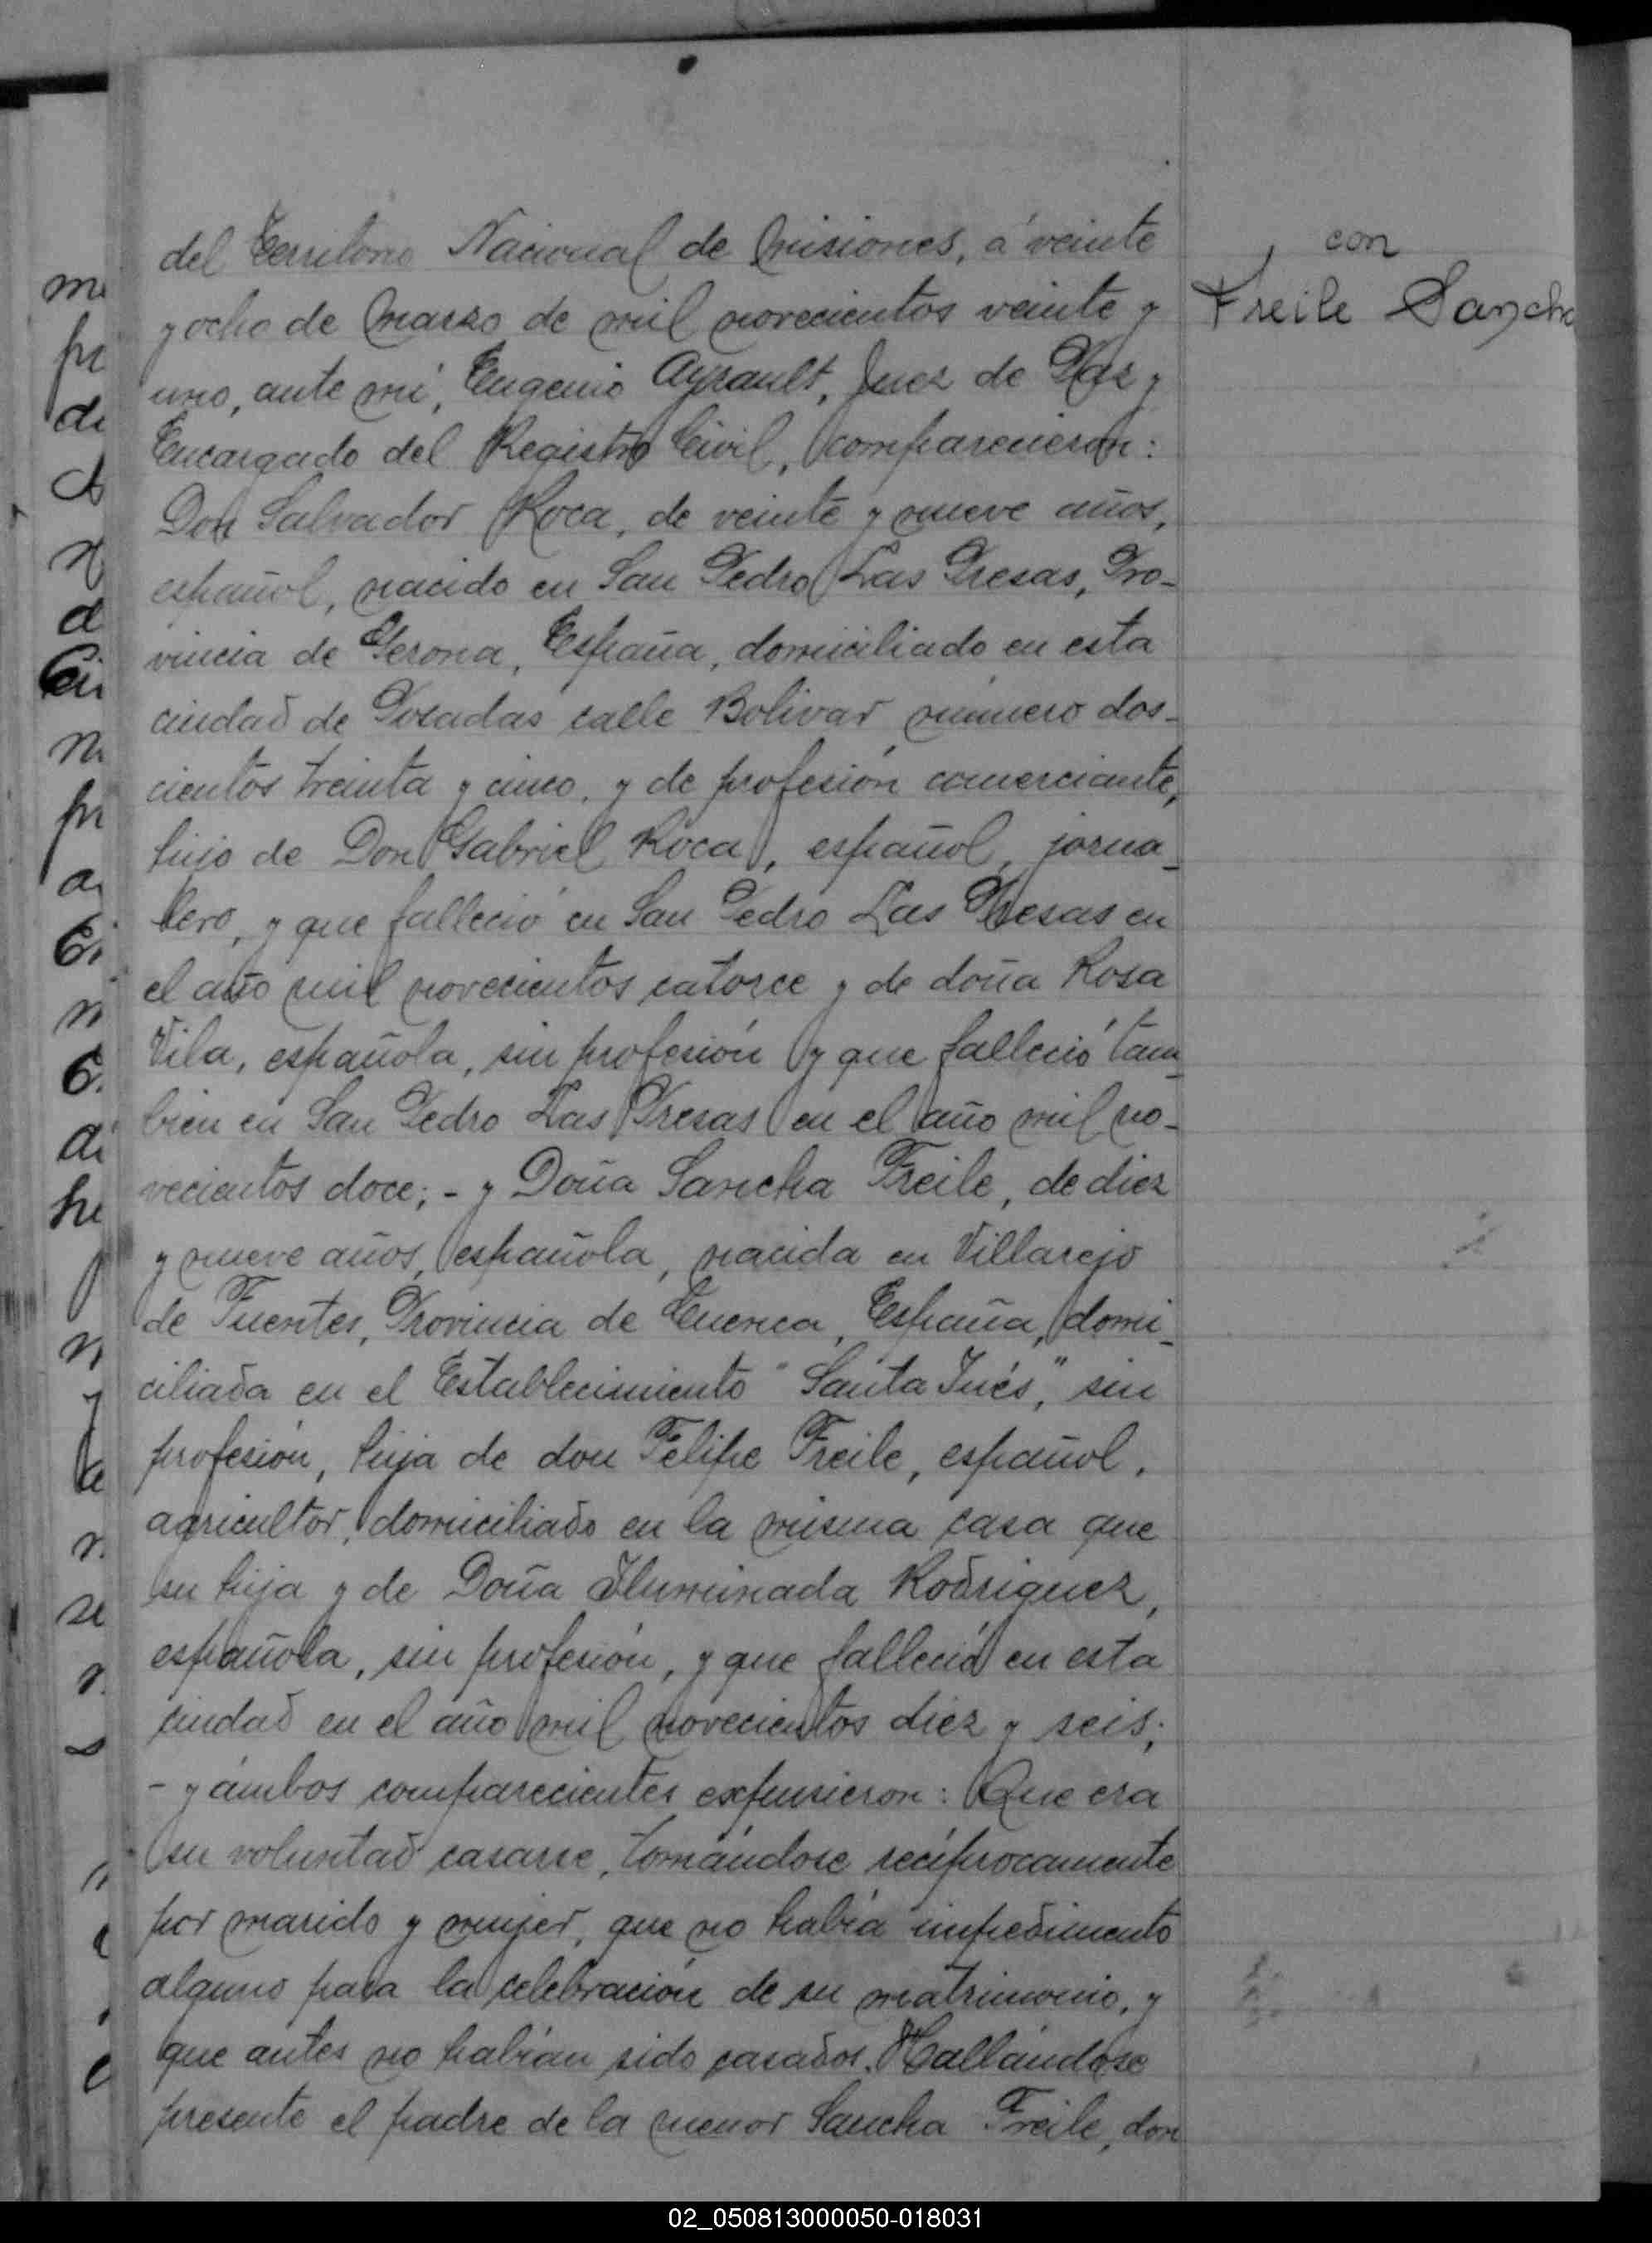 con
Freile Sancha
del Territorio Nacional de Misiones, á veinte
y ocho de Marzo de mil novecientos veinte y
uno, ante mi, Eugenio Ayrault, Juez de Paz y
Encargado del Registro Civil, comparecieron:
Don Salvador Roca, de veinte y nueve años,
español, nacido en San Pedro Las Presas, Pro-
vincia de Gerona, España, domiciliado en esta
ciudad de Posadas calle Bolivar número dos-
cientos treinta y cinco, y de profesión comerciante,
hijo de Don Gabriel Roca, español, jorna-
lero, y que falleció en San Pedro Las Presas en
el año mil novecientos catorce y de doña Rosa
Vila, española, sin profesión y que falleció tam-
bien en San Pedro Las Presas en el año mil no-
vecientos doce; - y Doña Sancha Freile, de diez
y nueve años, española, nacida en Villarejo
de Fuentes, Provincia de Cuenca, España, domi-
ciliada en el Establecimiento "Santa Inés," sin
profesión, hija de don Felipe Freile, español,
agricultor, domiciliado en la misma casa que
su hija y de Doña Iluminada Rodriguez,
española, sin profesión, y que falleció en esta
ciudad en el año mil novecientos diez y seis;
- y ámbos comparecientes expusieron: Que era
su voluntad casarse, tomándose recíprocamente
por marido y mujer, que no había impedimento
alguno para la celebración de su matrimonio, y
que antes no habían sido casados. Hallándose
presente el padre de la menor Sancha Freile, don
02_050813000050-018031